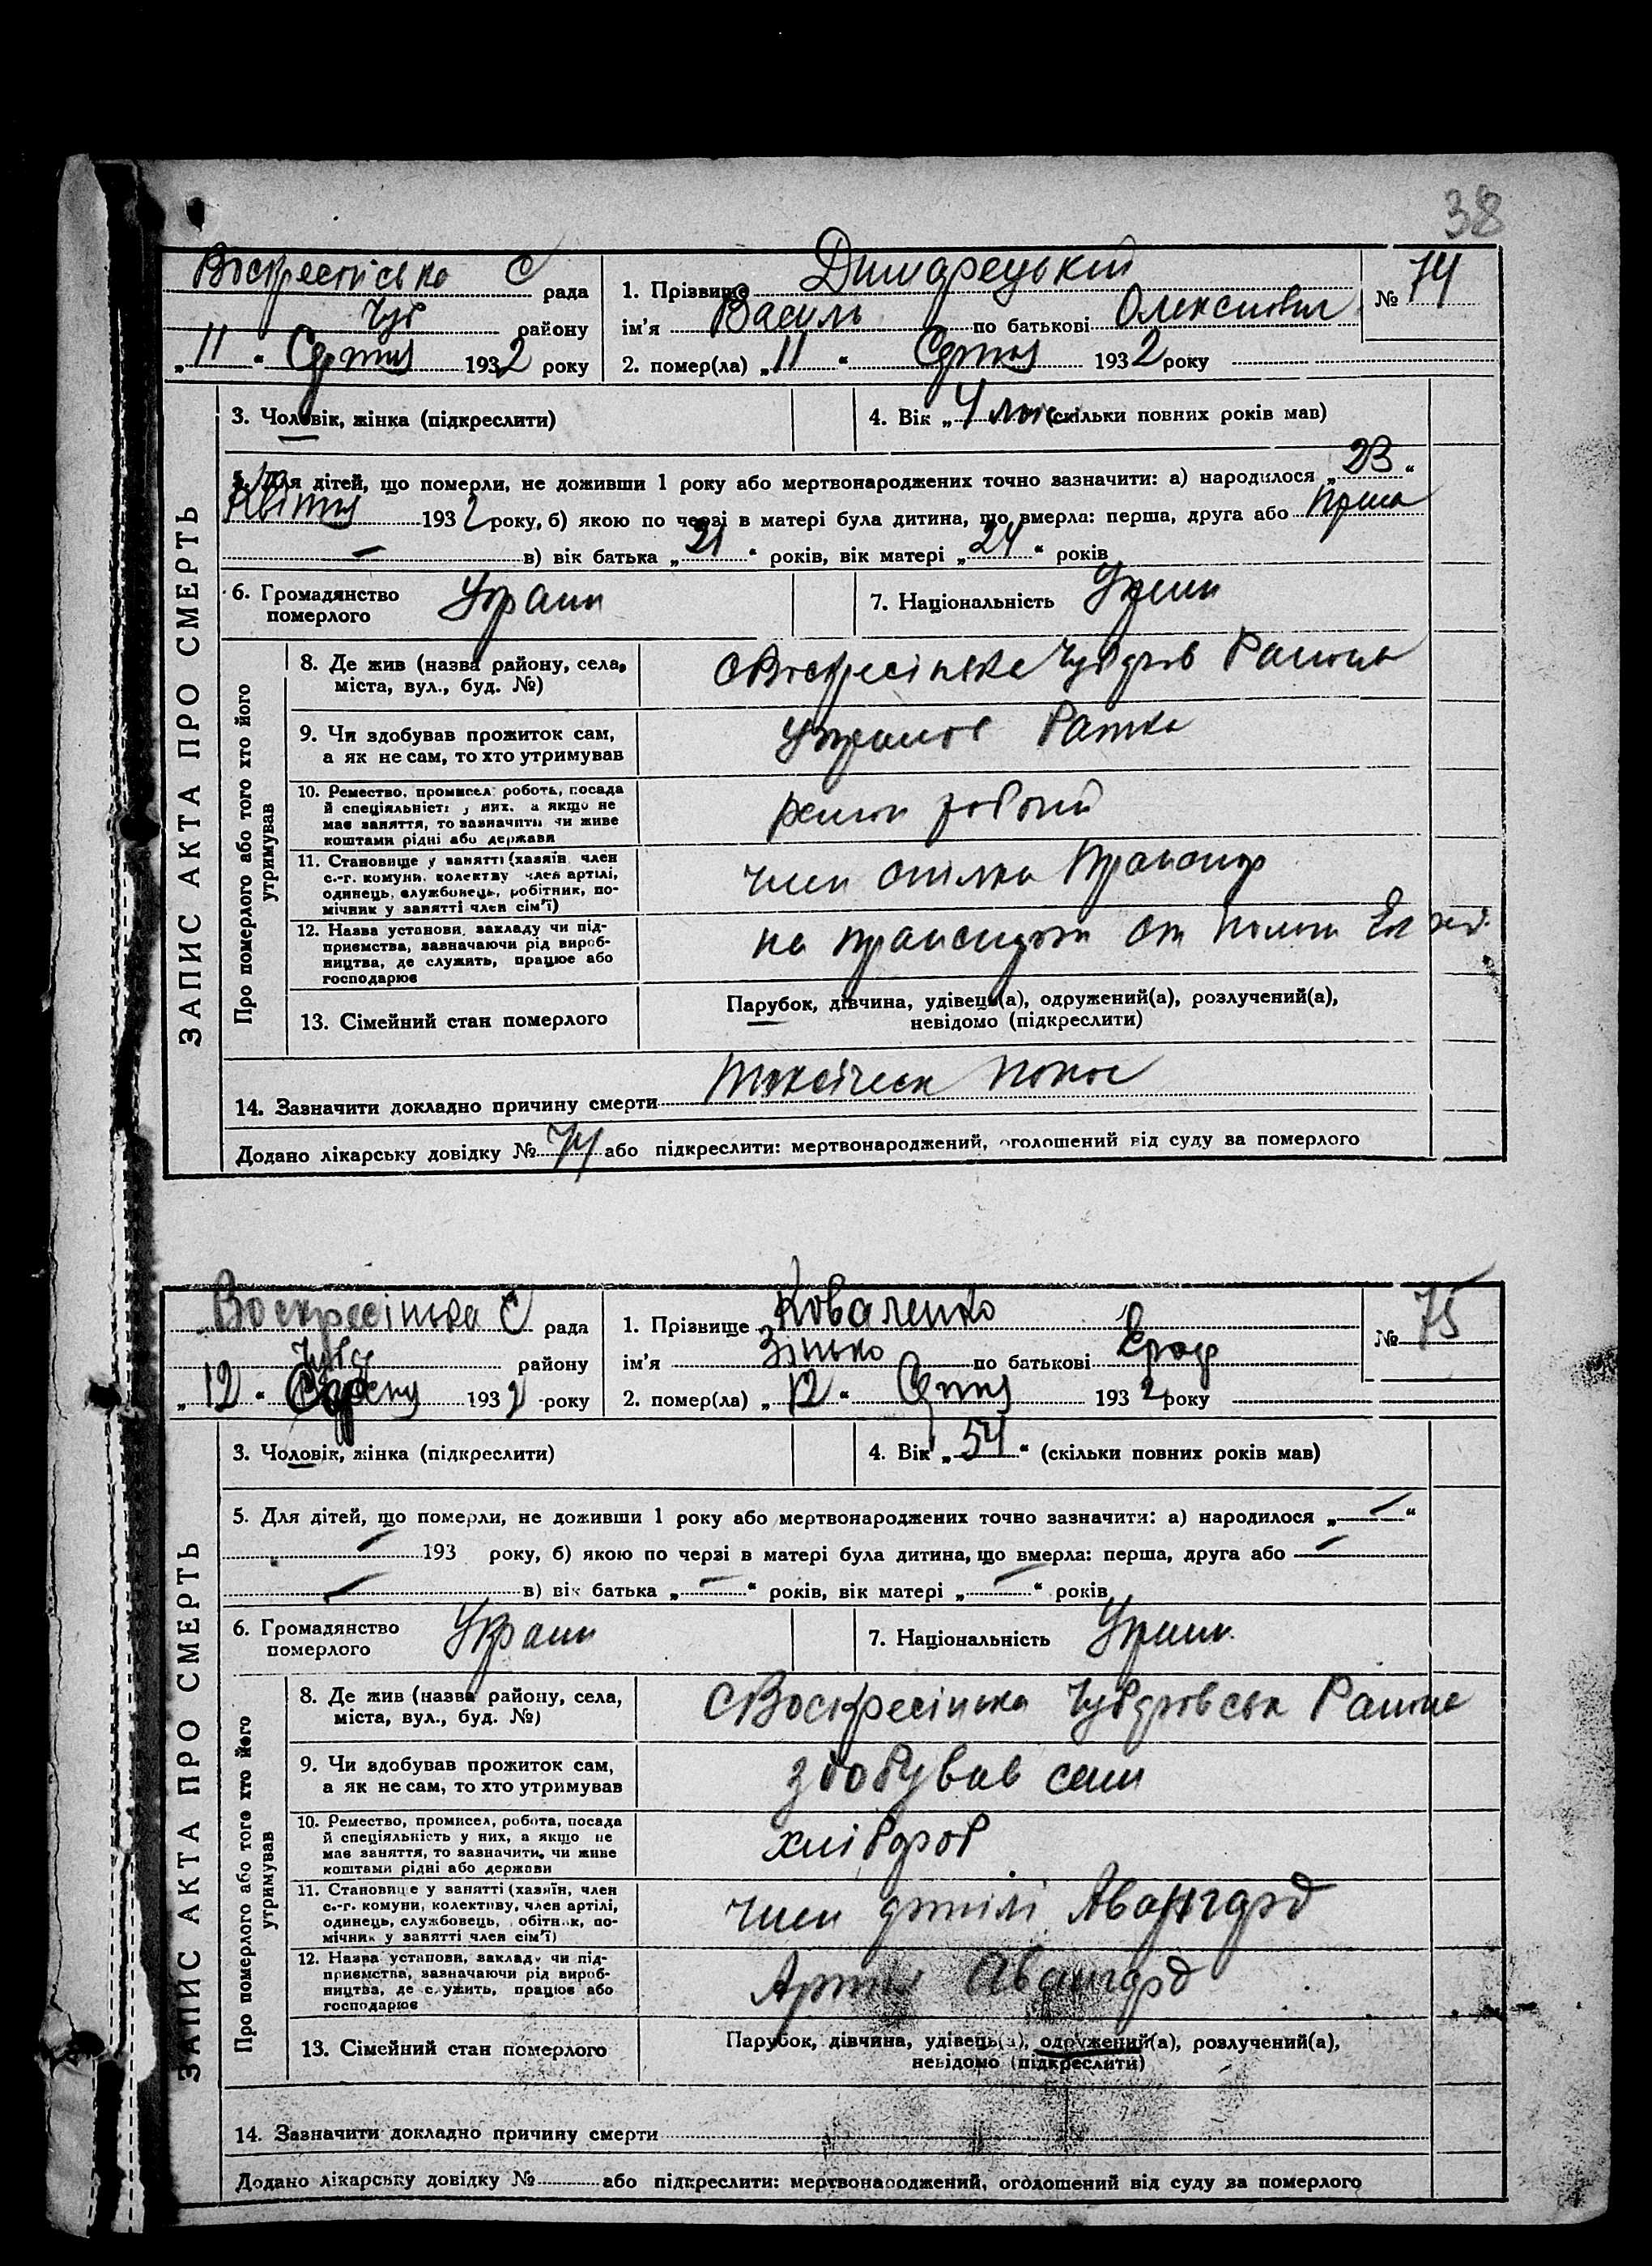 38
Воскресінська С рада
Чуб району
„11“ Серпня 1932 року
1. Прізвище Димарецький
ім'я Василь по батькові Олексиєвич
2. помер(ла) „11“ Серпня 1932 року
№ 74
ЗАПИС АКТА ПРО СМЕРТЬ
3. Чоловік, жінка (підкреслити)
4. Вік „4 міс (скільки повних років мав)
5. Для дітей, що померли, не доживши 1 року або мертвонароджених точно зазначити: а) народилося „23“
Квітня 1932 року, б) якою по черзі в матері була дитина, що вмерла: перша, друга або перша
— в) вік батька „21“ років, вік матері „24“ років
6. Громадянство
померлого
Украин
7. Національність Украин
Про померлого або того хто його
утримував
8. Де жив (назва району, села,
міста, вул., буд. №)
с Воскресінська Чубарів Району
9. Чи здобував прожиток сам,
а як не сам, то хто утримував
Утримов Батко
10. Ремество, промисел, робота, посада
й спеціяльність у них, а якщо не
має заняття, то зазначити, чи живе
коштами рідні або держави
робочий
11. Становище у занятті (хазяїн, член
с.-г. комуни, колективу, член артілі,
одинець, службовець, робітник, по-
мічник у занятті член сім'ї)
член спілки Транспор
12. Назва установи, закладу чи під-
приємства, зазначаючи рід вироб-
ництва, де служить, працює або
господарює
на транспорті ст
13. Сімейний стан померлого
Парубок, дівчина, удівець(а), одружений(а), розлучений(а),
невідомо (підкреслити)
14. Зазначити докладно причину смерти Токсічеськ понос
Додано лікарську довідку № 74 або підкреслити: мертвонароджений, оголошений від суду за померлого
Воскресінська С рада
Чубар району
„12“ Серпня 1932 року
1. Прізвище Коваленко
ім'я Зінько по батькові Єроф
2. помер(ла) „12“ Серпня 1932 року
№ 75
ЗАПИС АКТА ПРО СМЕРТЬ
3. Чоловік, жінка (підкреслити)
4. Вік „54“ (скільки повних років мав)
5. Для дітей, що померли, не доживши 1 року або мертвонароджених точно зазначити: а) народилося „—“
— 193 року, б) якою по черзі в матері була дитина, що вмерла: перша, друга або —
— в) вік батька „—“ років, вік матері „—“ років
6. Громадянство
померлого
Украин
7. Національність Украин
Про померлого або того хто його
утримував
8. Де жив (назва району, села,
міста, вул., буд. №)
с Воскресінька Чубарівськ Района
9. Чи здобував прожиток сам,
а як не сам, то хто утримував
здобував сам
10. Ремество, промисел, робота, посада
й спеціяльність у них, а якщо не
має заняття, то зазначити, чи живе
коштами рідні або держави
хлібороб
11. Становище у занятті (хазяїн, член
с.-г. комуни, колективу, член артілі,
одинець, службовець, робітник, по-
мічник у занятті член сім'ї)
член артілі Авангард
12. Назва установи, закладу чи під-
приємства, зазначаючи рід вироб-
ництва, де служить, працює або
господарює
Артіль Авангард
13. Сімейний стан померлого
Парубок, дівчина, удівець(а), одружений(а), розлучений(а),
невідомо (підкреслити)
14. Зазначити докладно причину смерти
Додано лікарську довідку № або підкреслити: мертвонароджений, оголошений від суду за померлого